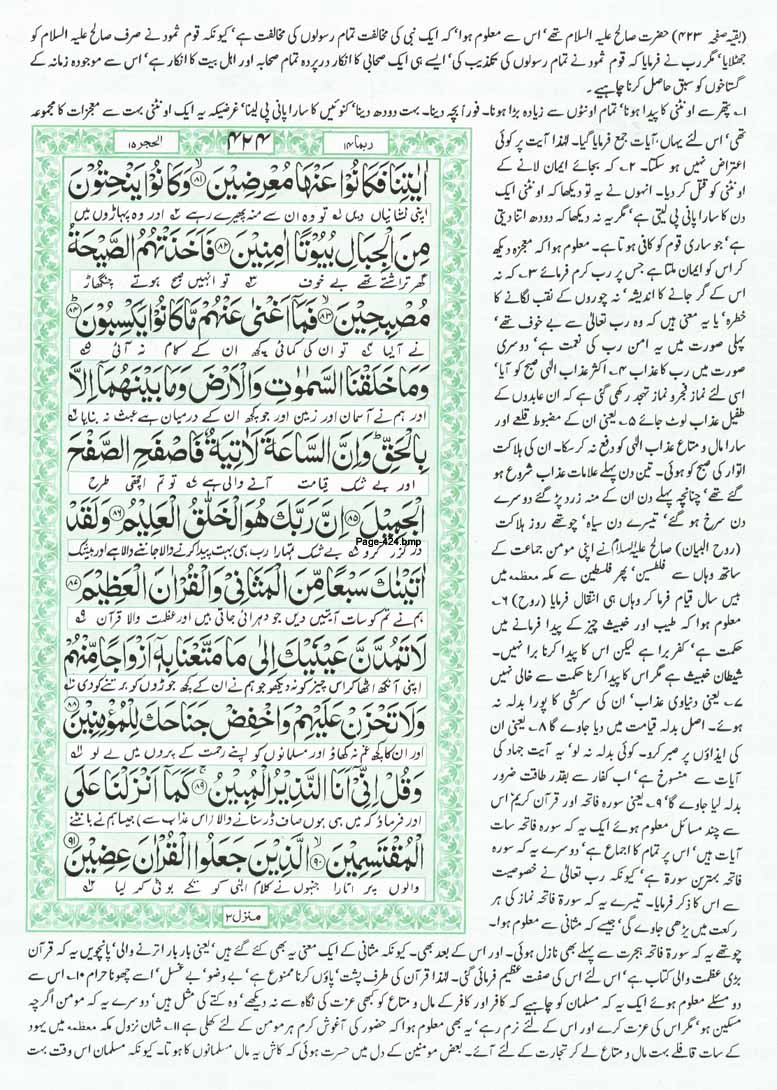 (بقیہ صفحہ ۴۲۳) حضرت صالح علیہ السلام تھے' اس سے معلوم ہوا' کہ ایک نبی کی مخالفت تمام رسولوں کی مخالفت ہے' کیونکہ قوم ثمود نے صرف صالح علیہ السلام کو
جھٹلایا' مگر رب نے فرمایا کہ قوم ثمود نے تمام رسولوں کی تکذیب کی' ایسے ہی ایک صحابی کا انکار درپردہ تمام صحابہ اور اہل بیت کا انکار ہے' اس سے موجودہ زمانہ کے
گستاخوں کو سبق حاصل کرنا چاہیے۔
۱۔ پتھر سے اونٹنی کا پیدا ہونا' تمام اونٹوں سے زیادہ بڑا ہونا۔ فوراً بچہ دینا۔ بہت دودھ دینا' کنوئیں کا سارا پانی پی لینا' غرضیکہ یہ ایک اونٹنی بہت سے معجزات کا مجموعہ
تھی' اس لئے یہاں آیات جمع فرمایا گیا۔ لہٰذا آیت پر کوئی
اعتراض نہیں ہو سکتا۔ ۲۔ کہ بجائے ایمان لانے کے
اونٹنی کو قتل کر دیا۔ انہوں نے یہ تو دیکھا کہ اونٹنی ایک
دن کا سارا پانی پی لیتی ہے' مگر یہ نہ دیکھا کہ دودھ اتنا دیتی
ہے' جو ساری قوم کو کافی ہوتا ہے۔ معلوم ہوا کہ معجزہ دیکھ
کر اس کو ایمان ملتا ہے جس پر رب کرم فرمائے ۳۔ کہ نہ
اس کے گر جانے کا اندیشہ' نہ چوروں کے نقب لگانے کا
خطرہ' یا یہ معنی ہیں کہ وہ رب تعالیٰ سے بے خوف تھے'
پہلی صورت میں یہ امن رب کی نعمت ہے' دوسری
صورت میں رب کا عذاب ۴۔ اکثر عذاب الٰہی صبح کو آیا'
اسی لئے نماز فجر و نماز تہجد رکھی گئی ہے کہ ان عابدوں کے
طفیل عذاب لوٹ جائے ۵۔ یعنی ان کے مضبوط قلعے اور
سارا مال و متاع عذاب الٰہی کو دفع نہ کر سکا۔ ان کی ہلاکت
اتوار کی صبح کو ہوئی۔ تین دن پہلے علامات عذاب شروع ہو
گئے تھے' چنانچہ پہلے دن ان کے منہ زرد پڑ گئے دوسرے
دن سرخ ہو گئے' تیسرے دن سیاہ' چوتھے روز ہلاکت
(روح البیان) صالح علیہ السلام نے اپنی مومن جماعت کے
ساتھ وہاں سے فلسطین' پھر فلسطین سے مکہ معظمہ میں
بیس سال قیام فرما کر وہاں ہی انتقال فرمایا (روح) ۶۔
معلوم ہوا کہ طیب اور خبیث چیز کے پیدا فرمانے میں
حکمت ہے' کفر برا ہے لیکن اس کا پیدا کرنا برا نہیں۔
شیطان خبیث ہے مگر اس کا پیدا کرنا حکمت سے خالی نہیں
۷۔ یعنی دنیاوی عذاب' ان کی سرکشی کا پورا بدلہ نہ
ہوئے۔ اصل بدلہ قیامت میں دیا جاوے گا ۸۔ یعنی ان
کی ایذاؤں پر صبر کرو۔ کوئی بدلہ نہ لو' یہ آیت جہاد کی
آیات سے منسوخ ہے' اب کفار سے بقدر طاقت ضرور
بدلہ لیا جاوے گا' ۹۔ یعنی سورہ فاتحہ اور قرآن کریم' اس
سے چند مسائل معلوم ہوئے ایک یہ کہ سورہ فاتحہ سات
آیات ہیں' اس پر تمام کا اجماع ہے' دوسرے یہ کہ سورہ
فاتحہ بہترین سورۃ ہے' کیونکہ رب تعالیٰ نے خصوصیت
سے اس کا ذکر فرمایا۔ تیسرے یہ کہ سورۃ فاتحہ نماز کی ہر
رکعت میں پڑھی جاوے گی' جیسے کہ مثانی سے معلوم ہوا۔
ربما ۱۴ ۴۲۴ الحجر ۱۵
اٰیٰتِنَا فَكَانُوْا عَنْهَا مُعْرِضِیْنَ ﴿۸۱﴾ وَكَانُوْا یَنْحِتُوْنَ
اپنی نشانیاں دیں ۱ تو وہ ان سے منہ پھیرے رہے ۲ اور وہ پہاڑوں میں
مِنَ الْجِبَالِ بُیُوْتًا اٰمِنِیْنَ ﴿۸۲﴾ فَاَخَذَتْهُمُ الصَّیْحَةُ
گھر تراشتے تھے بے خوف ۳ تو انہیں صبح ہوتے چنگھاڑ
مُصْبِحِیْنَ ﴿۸۳﴾ فَمَاۤ اَغْنٰى عَنْهُمْ مَّا كَانُوْا یَكْسِبُوْنَ ﴿۸۴﴾
نے آلیا ۴ تو ان کی کمائی کچھ ان کے کام نہ آئی ۵
وَمَا خَلَقْنَا السَّمٰوٰتِ وَالْاَرْضَ وَمَا بَیْنَهُمَاۤ اِلَّا
اور ہم نے آسمان اور زمین اور جو کچھ ان کے درمیان ہے عبث نہ بنایا ۶
بِالْحَقِّ ؕ وَاِنَّ السَّاعَةَ لَاٰتِیَةٌ فَاصْفَحِ الصَّفْحَ
اور بے شک قیامت آنے والی ہے ۷ تو تم اچھی طرح
الْجَمِیْلَ ﴿۸۵﴾ اِنَّ رَبَّكَ هُوَ الْخَلّٰقُ الْعَلِیْمُ ﴿۸۶﴾ وَلَقَدْ
درگزر کرو ۸ بے شک تمہارا رب ہی بہت پیدا کرنے والا جاننے والا ہے اور بیشک
Page-424.bmp
اٰتَیْنٰكَ سَبْعًا مِّنَ الْمَثَانِیْ وَالْقُرْاٰنَ الْعَظِیْمَ ﴿۸۷﴾
ہم نے تم کو سات آیتیں دیں جو دہرائی جاتی ہیں اور عظمت والا قرآن ۹
لَا تَمُدَّنَّ عَیْنَیْكَ اِلٰى مَا مَتَّعْنَا بِهٖۤ اَزْوَاجًا مِّنْهُمْ
اپنی آنکھ اٹھا کر اس چیز کو نہ دیکھو جو ہم نے ان کے کچھ جوڑوں کو برتنے کو دی ۱۰
وَلَا تَحْزَنْ عَلَیْهِمْ وَاخْفِضْ جَنَاحَكَ لِلْمُؤْمِنِیْنَ ﴿۸۸﴾
اور ان کا کچھ غم نہ کھاؤ اور مسلمانوں کو اپنے رحمت کے پردوں میں لے لو
وَقُلْ اِنِّیْۤ اَنَا النَّذِیْرُ الْمُبِیْنُ ﴿۸۹﴾ كَمَاۤ اَنْزَلْنَا عَلَى
اور فرماؤ کہ میں ہی ہوں صاف ڈر سنانے والا (اس عذاب سے) جیسا ہم نے بانٹنے
الْمُقْتَسِمِیْنَ ﴿۹۰﴾ الَّذِیْنَ جَعَلُوا الْقُرْاٰنَ عِضِیْنَ ﴿۹۱﴾
والوں پر اتارا جنہوں نے کلام الٰہی کو تکے بوٹی کر لیا
منزل ۳
چوتھے یہ کہ سورۃ فاتحہ ہجرت سے پہلے بھی نازل ہوئی۔ اور اس کے بعد بھی۔ کیونکہ مثانی کے ایک معنی یہ بھی کئے گئے ہیں' یعنی بار بار اترنے والی' پانچویں یہ کہ قرآن
بڑی عظمت والی کتاب ہے' اس لئے اس کی صفت عظیم فرمائی گئی۔ لہٰذا قرآن کی طرف پشت' پاؤں کرنا ممنوع ہے' بے وضو' بے غسل' اسے چھونا حرام ۱۰۔ اس سے
دو مسئلے معلوم ہوئے ایک یہ کہ مسلمان کو چاہیے کہ کافر اور کافر کے مال و متاع کو کبھی عزت کی نگاہ سے نہ دیکھے' وہ کتے کی مثل ہیں' دوسرے یہ کہ مومن اگرچہ
مسکین ہو' مگر اس کی عزت کرے اور اس کے لئے نرم رہے' یہ بھی معلوم ہوا کہ حضور کی آغوش کرم ہر مومن کے لئے کھلی ہے ۱۱۔ شان نزول مکہ معظمہ میں یہود
کے سات قافلے بہت مال و متاع لے کر تجارت کے لئے آئے۔ بعض مومنین کے دل میں حسرت ہوئی کہ کاش یہ مال مسلمانوں کا ہوتا۔ کیونکہ مسلمان اس وقت بہت